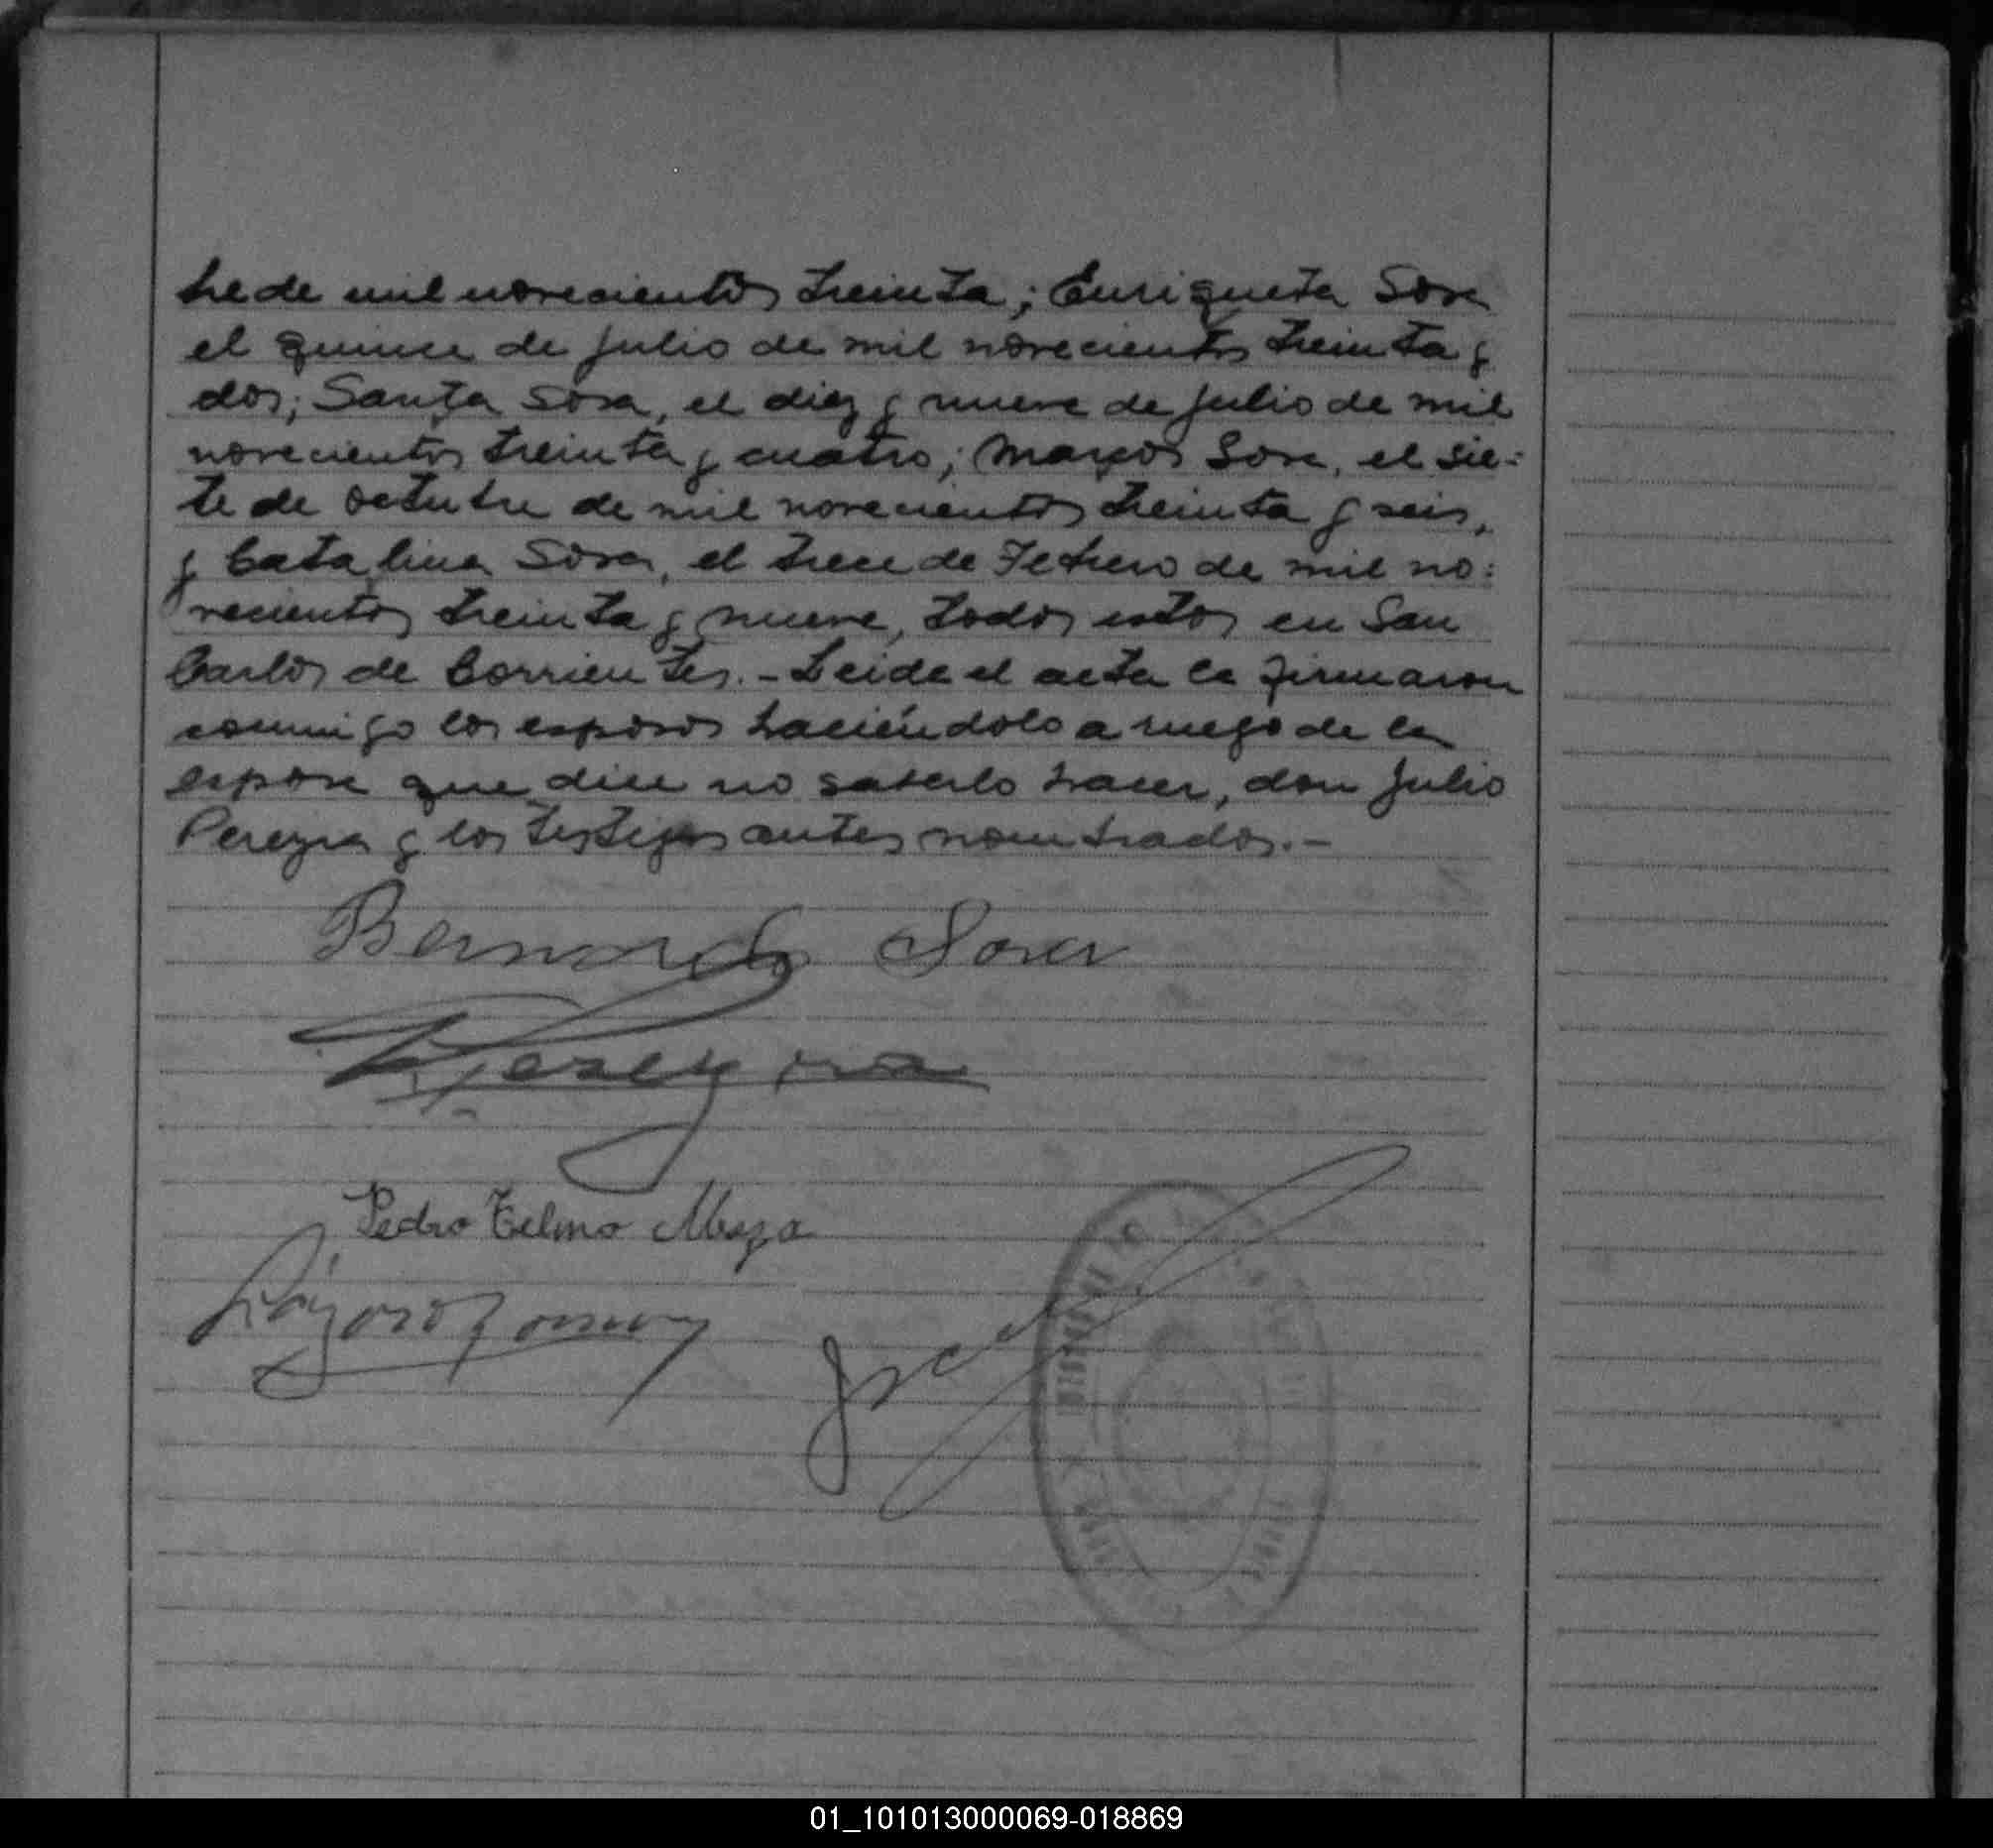 bre de mil novecientos treinta; Enriqueta Sosa
el quince de Julio de mil novecientos treinta y
dos; Santa Sosa, el diez y nueve de Julio de mil
novecientos treinta y cuatro; Marcos Sosa, el sie-
te de octubre de mil novecientos treinta y seis,
y Catalina Sosa, el trece de Febrero de mil no-
vecientos treinta y nueve, todos estos en San
Carlos de Corrientes.- Leida el acta la firmaron
conmigo los esposos haciéndolo a ruego de la
esposa que dice no saberlo hacer, don Julio
Pereyra y los testigos antes nombrados.-
Bernardo Sosa
Pereyra
Pedro Telmo Meza
Lázaro
01_101013000069-018869